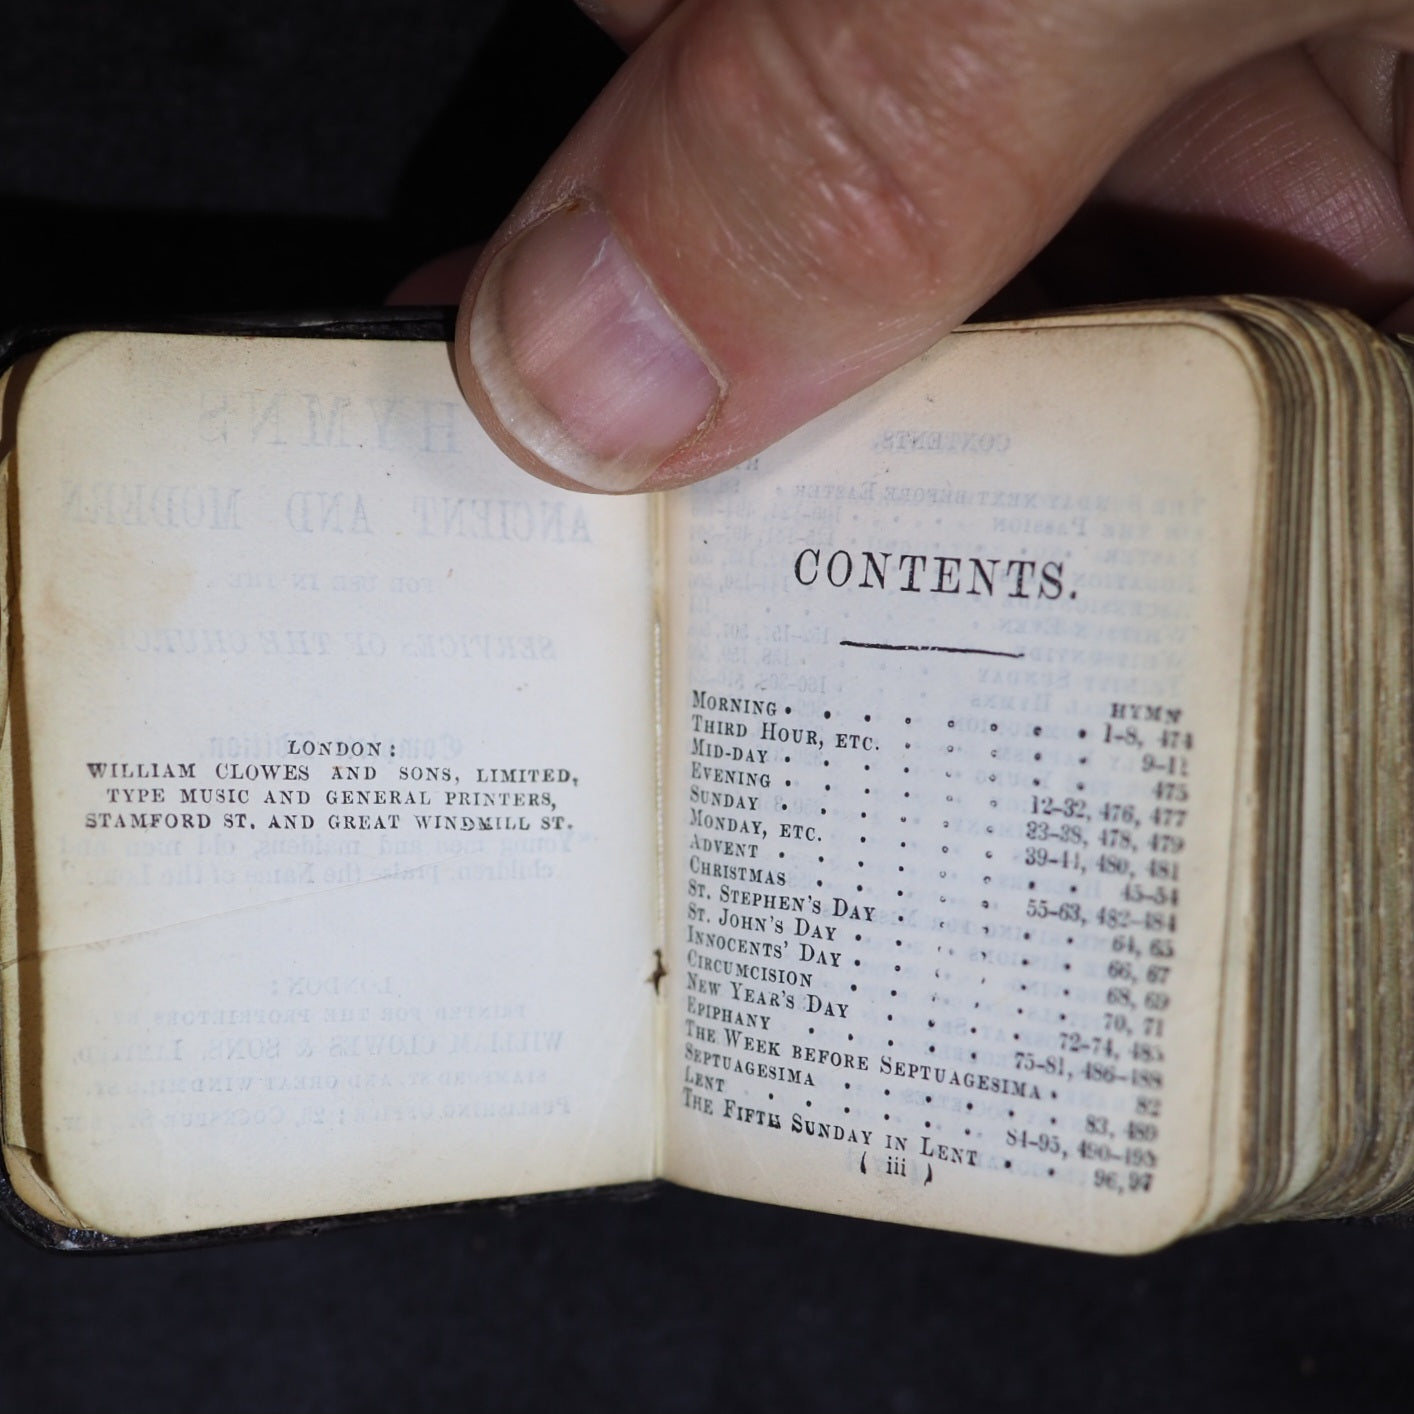 LONDON:
WILLIAM CLOWES AND SONS, LIMITED,
TYPE MUSIC AND GENERAL PRINTERS,
STAMFORD ST. AND GREAT WINDMILL ST.
CONTENTS.
HYMN
MORNING . . . . . . . . 1-8, 474
THIRD HOUR, ETC. . . . . . 9-11
MID-DAY . . . . . . . . 475
EVENING . . . . . . 12-32, 476, 477
SUNDAY . . . . . . 33-38, 478, 479
MONDAY, ETC. . . . . 39-44, 480, 481
ADVENT . . . . . . . . 45-54
CHRISTMAS . . . . . 55-63, 482-484
ST. STEPHEN'S DAY . . . . . 64, 65
ST. JOHN'S DAY . . . . . . 66, 67
INNOCENTS' DAY . . . . . . 68, 69
CIRCUMCISION . . . . . . 70, 71
NEW YEAR'S DAY . . . . 72-74, 485
EPIPHANY . . . . . 75-81, 486-488
THE WEEK BEFORE SEPTUAGESIMA . . 82
SEPTUAGESIMA . . . . . . 83, 489
LENT . . . . . . 84-95,
THE FIFTH SUNDAY IN LENT . . 96, 97
( iii )